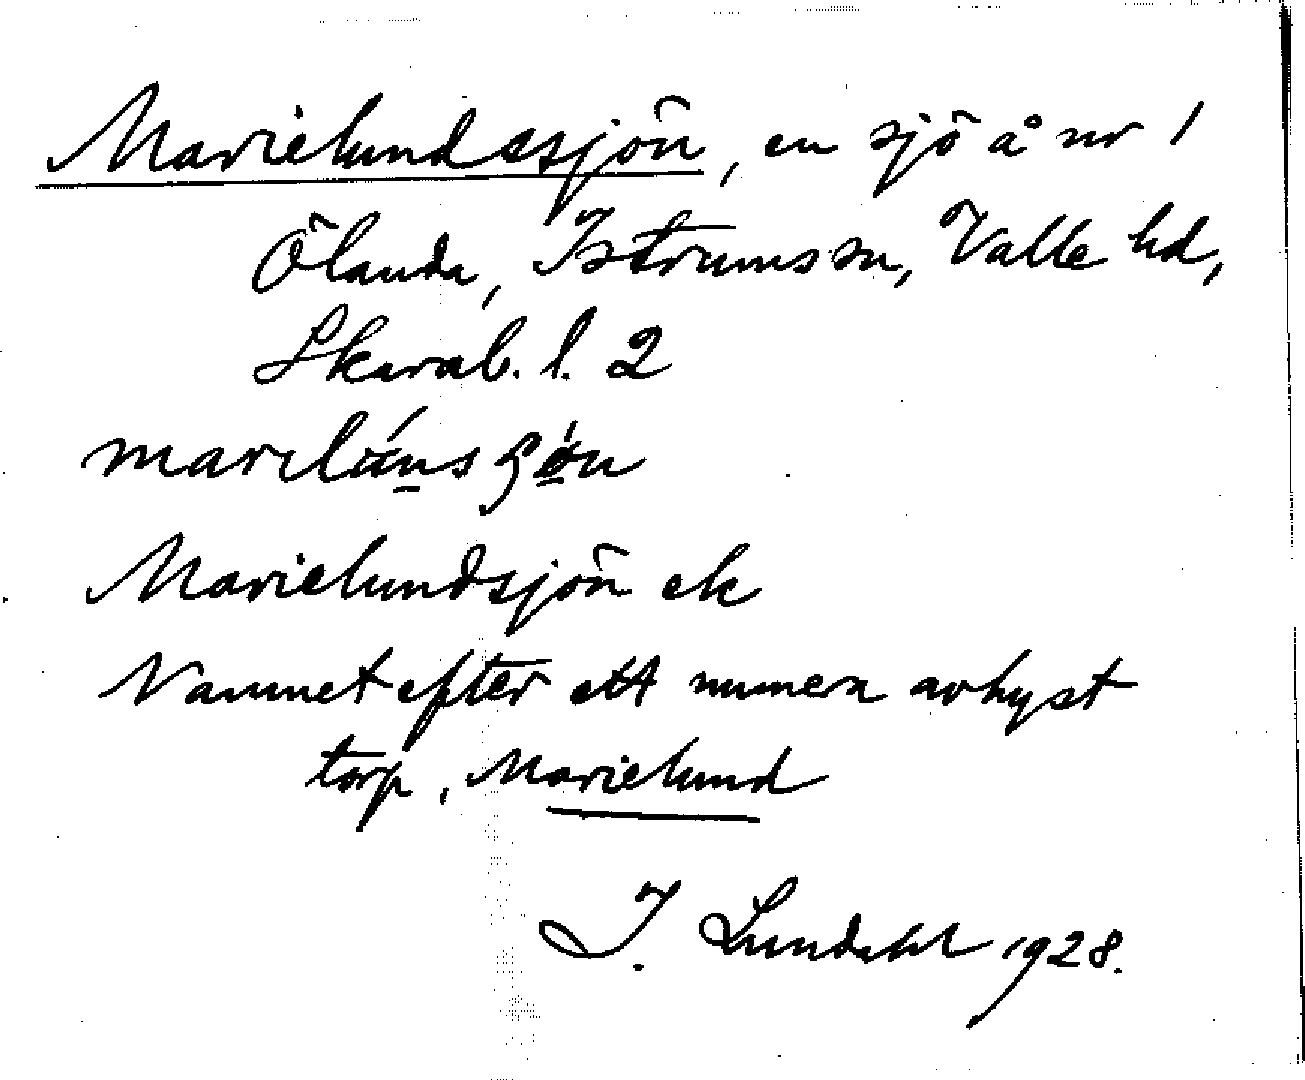 Marielundssjön, en sjö å nr 1
Ölanda, Istrums sn, Valle hd,
Skarab. l. 2
Marielundsjön ek
Namnet efter ett numera avhyst
torp, Marielund
I. Lundahl 1928.